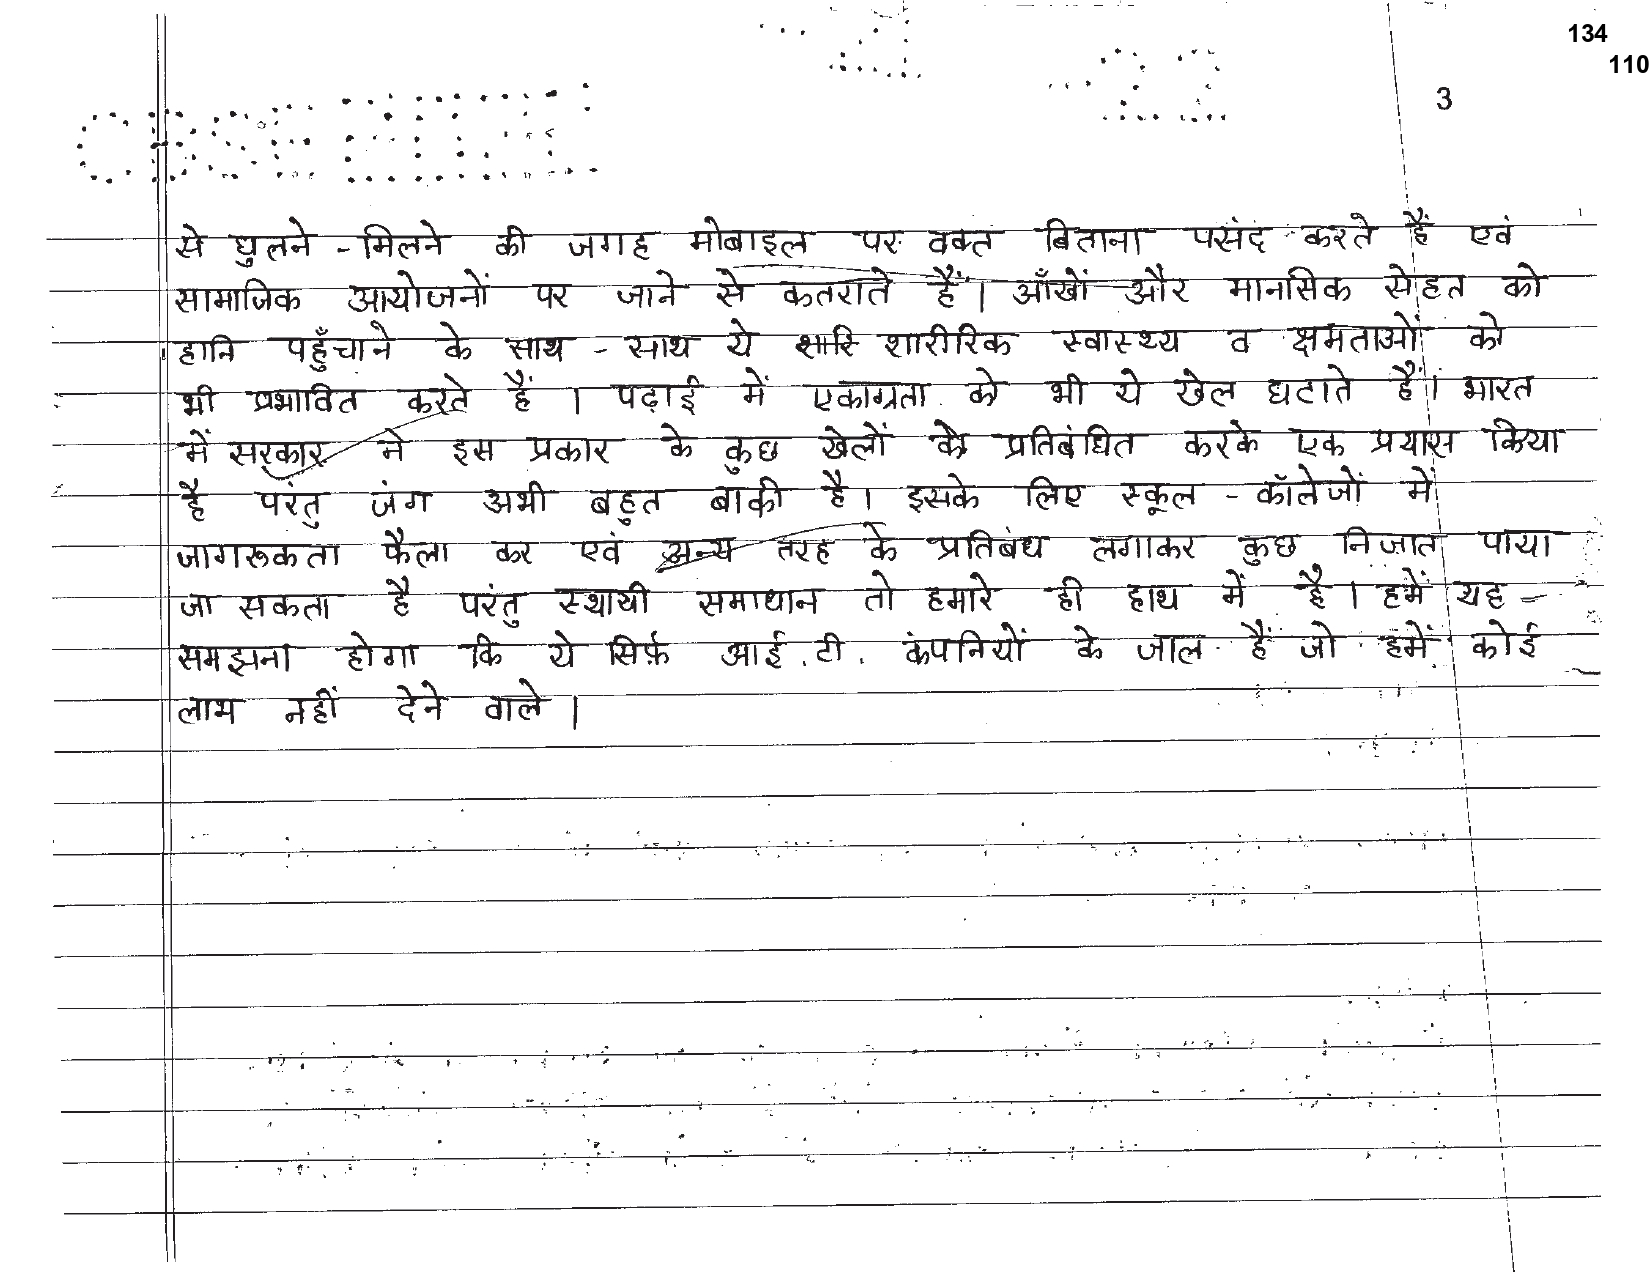 134
110
3
से घुलने - मिलने की जगह मोबाइल पर वक्त बिताना पसंद करते हैं एवं
सामाजिक आयोजनों पर जाने से कतराते हैं। आँखों और मानसिक सेहत को
हानि पहुँचाने के साथ - साथ ये शारि शारीरिक स्वास्थ्य व क्षमताओं को
भी प्रभावित करते हैं । पढ़ाई में एकाग्रता को भी ये खेल घटाते हैं। भारत
में सरकार ने इस प्रकार के कुछ खेलों को प्रतिबंधित करके एक प्रयास किया
है परंतु जंग अभी बहुत बाकी है। इसके लिए स्कूल - कॉलेजों में
जागरूकता फैला कर एवं अन्य तरह के प्रतिबंध लगाकर कुछ निजात पाया
जा सकता है परंतु स्थायी समाधान तो हमारे ही हाथ में है । हमें यह
समझना होगा कि ये सिर्फ़ आई.टी. कंपनियों के जाल हैं जो हमें कोई
लाभ नहीं देने वाले ।